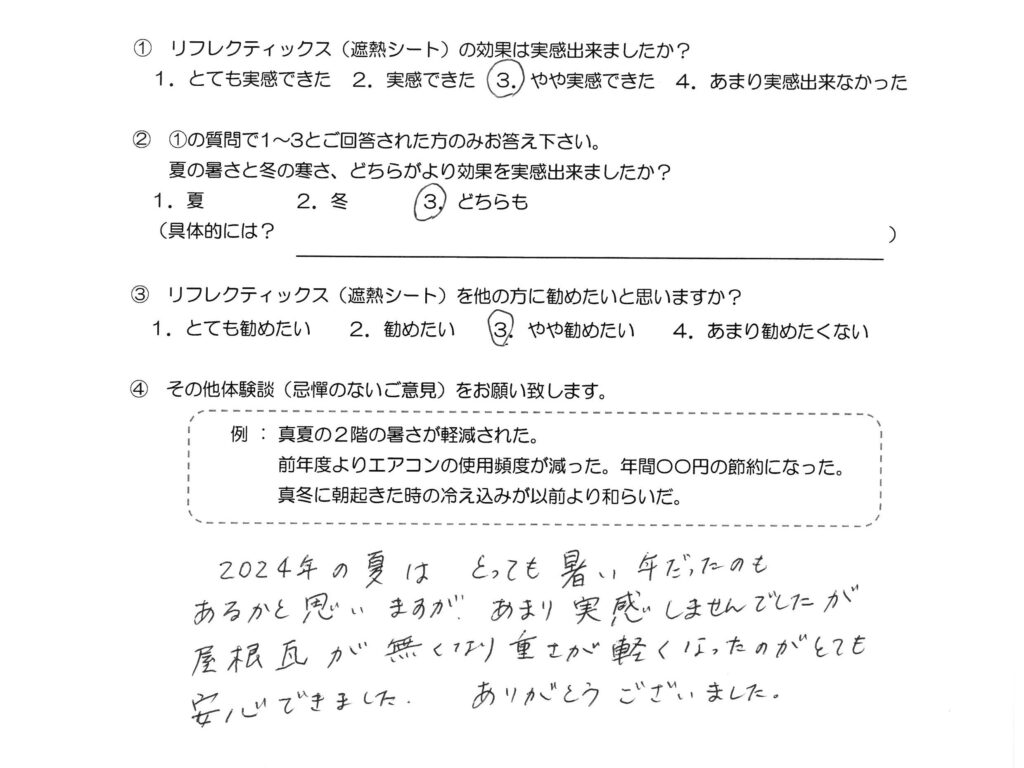 ① リフレクティックス（遮熱シート）の効果は実感出来ましたか？
1．とても実感できた　2．実感できた　3．やや実感できた　4．あまり実感出来なかった
② ①の質問で1～3とご回答された方のみお答え下さい。
夏の暑さと冬の寒さ、どちらがより効果を実感出来ましたか？
1．夏　2．冬　3．どちらも
（具体的には？　）
③ リフレクティックス（遮熱シート）を他の方に勧めたいと思いますか？
1．とても勧めたい　2．勧めたい　3．やや勧めたい　4．あまり勧めたくない
④ その他体験談（忌憚のないご意見）をお願い致します。
例 ： 真夏の２階の暑さが軽減された。
前年度よりエアコンの使用頻度が減った。年間〇〇円の節約になった。
真冬に朝起きた時の冷え込みが以前より和らいだ。
2024年の夏は とっても暑い年だったのも
あるかと思いますが、あまり実感しませんでしたが
屋根瓦が無くなり重さが軽くなったのがとても
安心できました。 ありがとうございました。